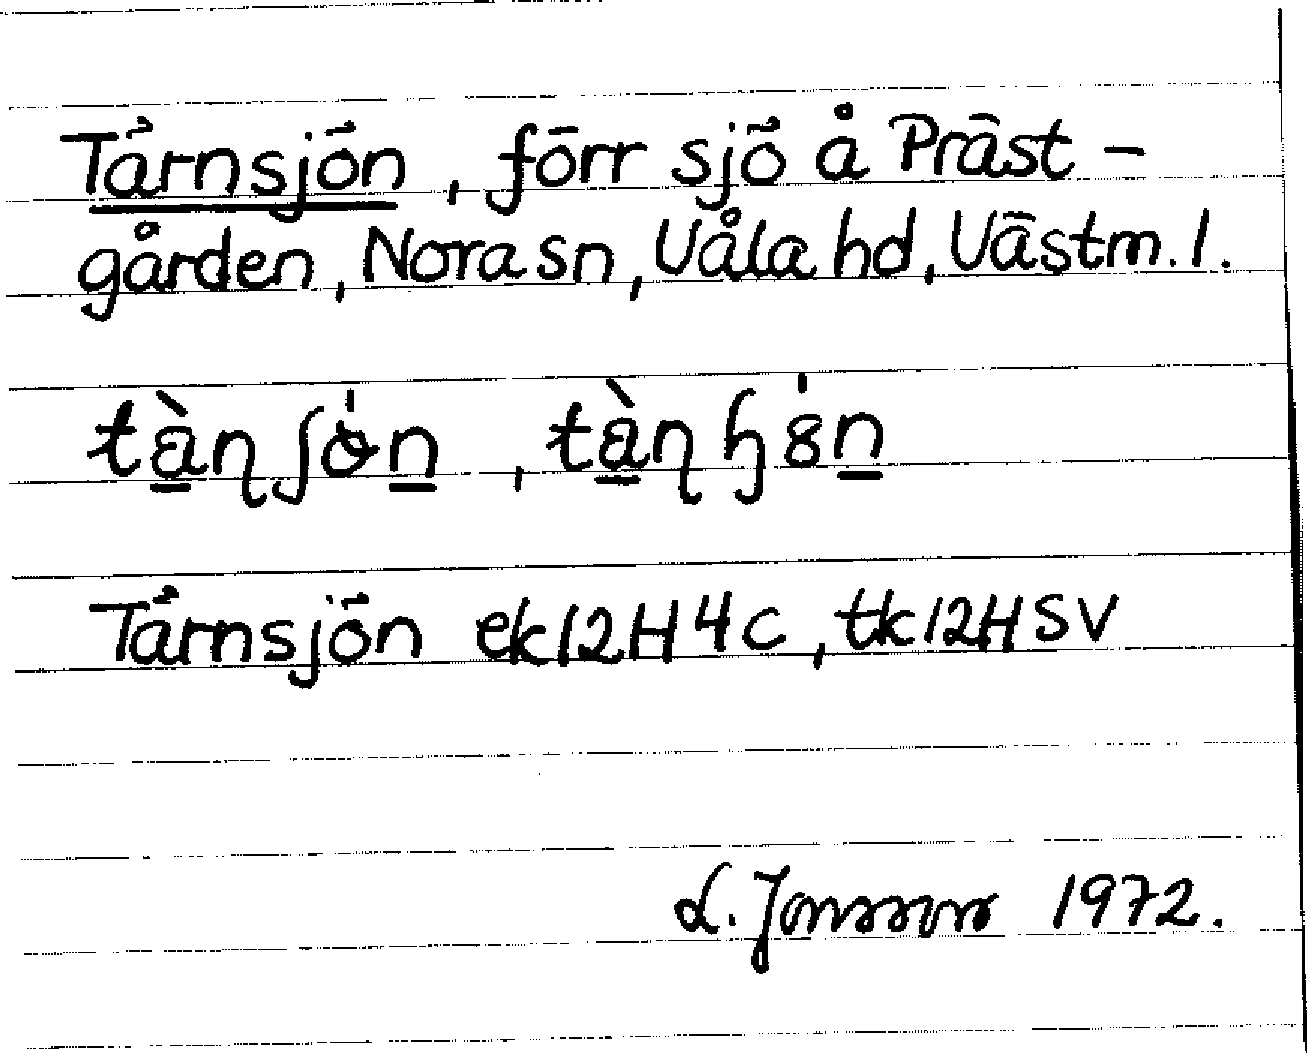 Tärnsjön, förr sjö å Präst-
gården, Nora sn, Våla hd, Västm. l.
tä̀ɳʃɵ́n, tä̀ɳɧ8́n
Tärnsjön ek12H4c, tk12HSV
L. Jonsson 1972.